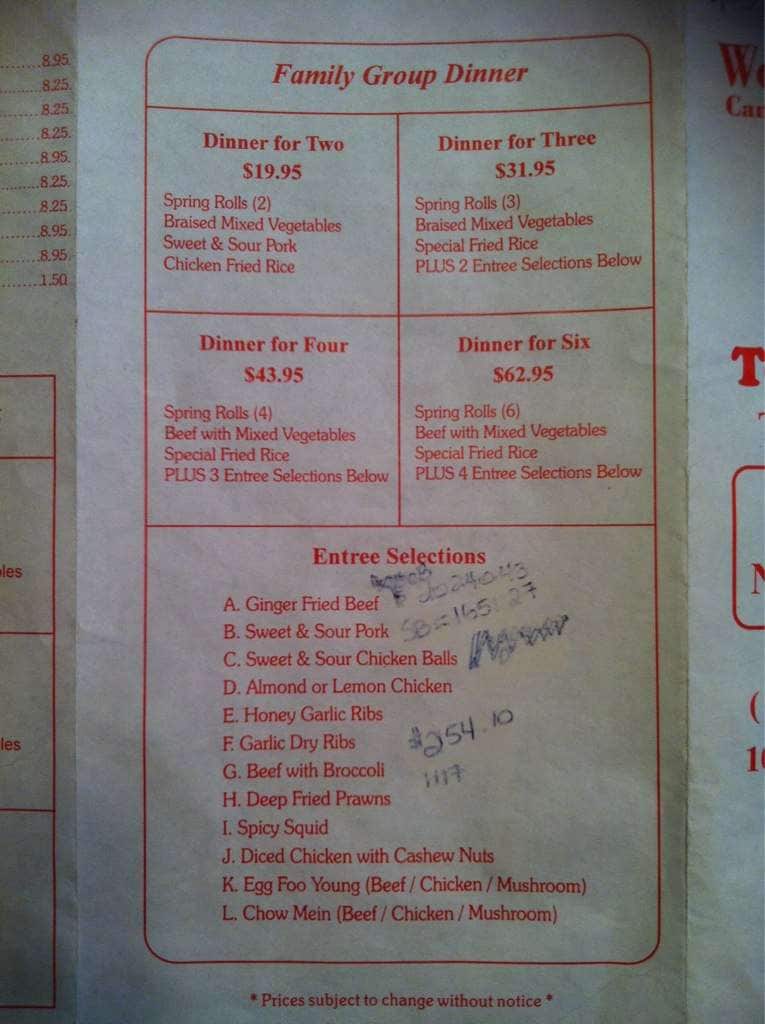 8.95
8.25
8.25
8.25
8.95
8.25
8.25
8.95
8.95
1.50
les
les
Family Group Dinner
Dinner for Two
$19.95
Spring Rolls (2)
Braised Mixed Vegetables
Sweet & Sour Pork
Chicken Fried Rice
Dinner for Three
$31.95
Spring Rolls (3)
Braised Mixed Vegetables
Special Fried Rice
PLUS 2 Entree Selections Below
Dinner for Four
$43.95
Spring Rolls (4)
Beef with Mixed Vegetables
Special Fried Rice
PLUS 3 Entree Selections Below
Dinner for Six
$62.95
Spring Rolls (6)
Beef with Mixed Vegetables
Special Fried Rice
PLUS 4 Entree Selections Below
Entree Selections
A. Ginger Fried Beef
B. Sweet & Sour Pork
C. Sweet & Sour Chicken Balls
D. Almond or Lemon Chicken
E. Honey Garlic Ribs
F. Garlic Dry Ribs
G. Beef with Broccoli
H. Deep Fried Prawns
I. Spicy Squid
J. Diced Chicken with Cashew Nuts
K. Egg Foo Young (Beef / Chicken / Mushroom)
L. Chow Mein (Beef / Chicken / Mushroom)
$254.10
1117
* Prices subject to change without notice *